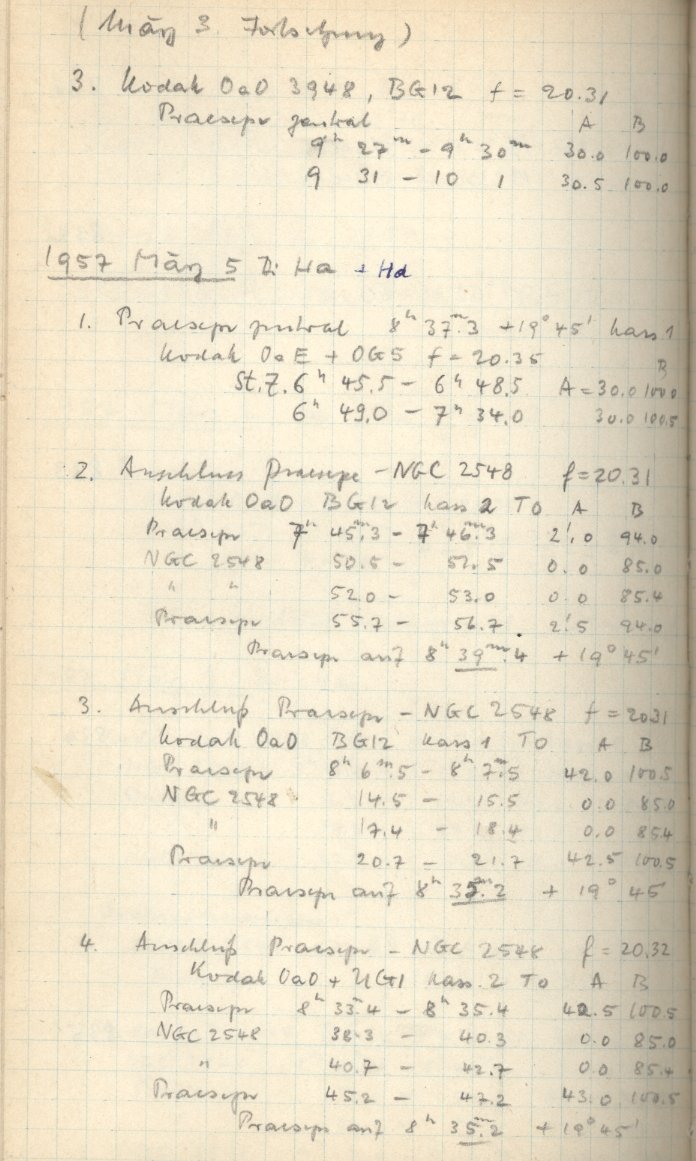 (März 3. Fortsetzung)
3. Kodak OaO 3948, BG12 f = 20.31
Praesepe zentral A B
9ʰ 27ᵐ - 9ʰ 30ᵐ 30.0 100.0
9 31 - 10 1 30.5 100.0
1957 März 5 Di Ha + Hd
1. Praesepe zentral 8ʰ 37ᵐ.3 +19° 45' Kass 1
Kodak OaE + OG5 f = 20.35 B
St.Z. 6ʰ 45.5 - 6ʰ 48.5 A = 30.0 100.0
6ʰ 49.0 - 7ʰ 34.0 30.0 100.5
2. Anschluss Praesepe - NGC 2548 f = 20.31
Kodak OaO BG12 Kass 2 TO A B
Praesepe 7ʰ 45ᵐ.3 - 7ʰ 46ᵐ.3 2'.0 94.0
NGC 2548 50.5 - 51.5 0.0 85.0
" " 52.0 - 53.0 0.0 85.4
Praesepe 55.7 - 56.7 2'.5 94.0
Praesepe auf 8ʰ 39ᵐ.4 + 19° 45'
3. Anschluß Praesepe - NGC 2548 f = 20.31
Kodak OaO BG12 Kass 1 TO A B
Praesepe 8ʰ 6ᵐ.5 - 8ʰ 7ᵐ.5 42.0 100.5
NGC 2548 14.5 - 15.5 0.0 85.0
" 17.4 - 18.4 0.0 85.4
Praesepe 20.7 - 21.7 42.5 100.5
Praesepe auf 8ʰ 35ᵐ.2 + 19° 45
4. Anschluß Praesepe - NGC 2548 f = 20.32
Kodak OaO + UG1 Kass. 2 TO A B
Praesepe 8ʰ 33ᵐ.4 - 8ʰ 35.4 42.5 100.5
NGC 2548 38.3 - 40.3 0.0 85.0
" 40.7 - 42.7 0.0 85.4
Praesepe 45.2 - 47.2 43.0 100.5
Praesepe auf 8ʰ 35ᵐ.2 + 19° 45'